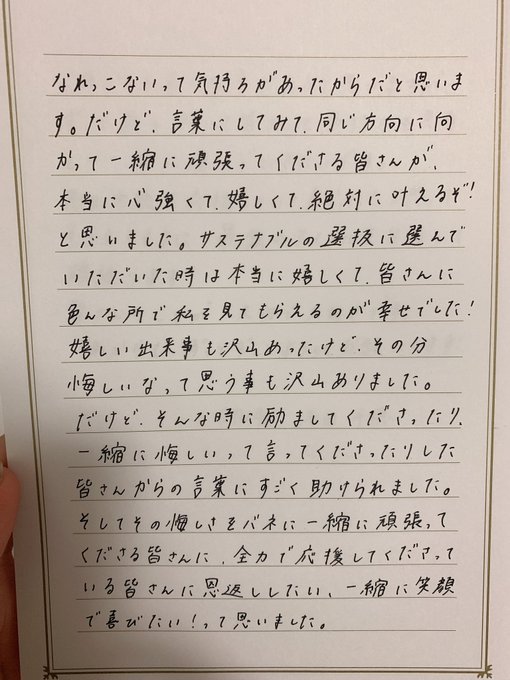 なれっこないって気持ちがあったからだと思いま
す。だけど、言葉にしてみて、同じ方向に向
かって一緒に頑張ってくださる皆さんが、
本当に心強くて、嬉しくて、絶対に叶えるぞ!
と思いました。サステナブルの選抜に選んで
いただいた時は本当に嬉しくて、皆さんに
色んな所で私を見てもらえるのが幸せでした!
嬉しい出来事も沢山あったけど、その分
悔しいなって思う事も沢山ありました。
だけど、そんな時に励ましてくださったり、
一緒に悔しいって言ってくださったりした
皆さんからの言葉にすごく助けられました。
そしてその悔しさをバネに一緒に頑張って
くださる皆さんに、全力で応援してくださって
いる皆さんに恩返ししたい、一緒に笑顔
で喜びたい!って思いました。